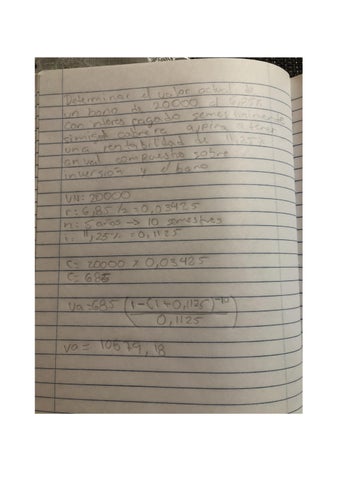 Determinar el valor actual de
un bono de 20000 al 6,85%
con interes pagado semestralmente
si
una rentabilidad de 11,25%
anual compuesto sobre
inversión y el bono
VN= 20000
r= 6,85/2 = 0,03425
n= 5 años → 10 semestres
i= 11,25% = 0,1125
C= 20000 x 0,03425
C= 685
Va= 685 (1-(1+0,1125)^-10 / 0,1125)
Va= 10579,18